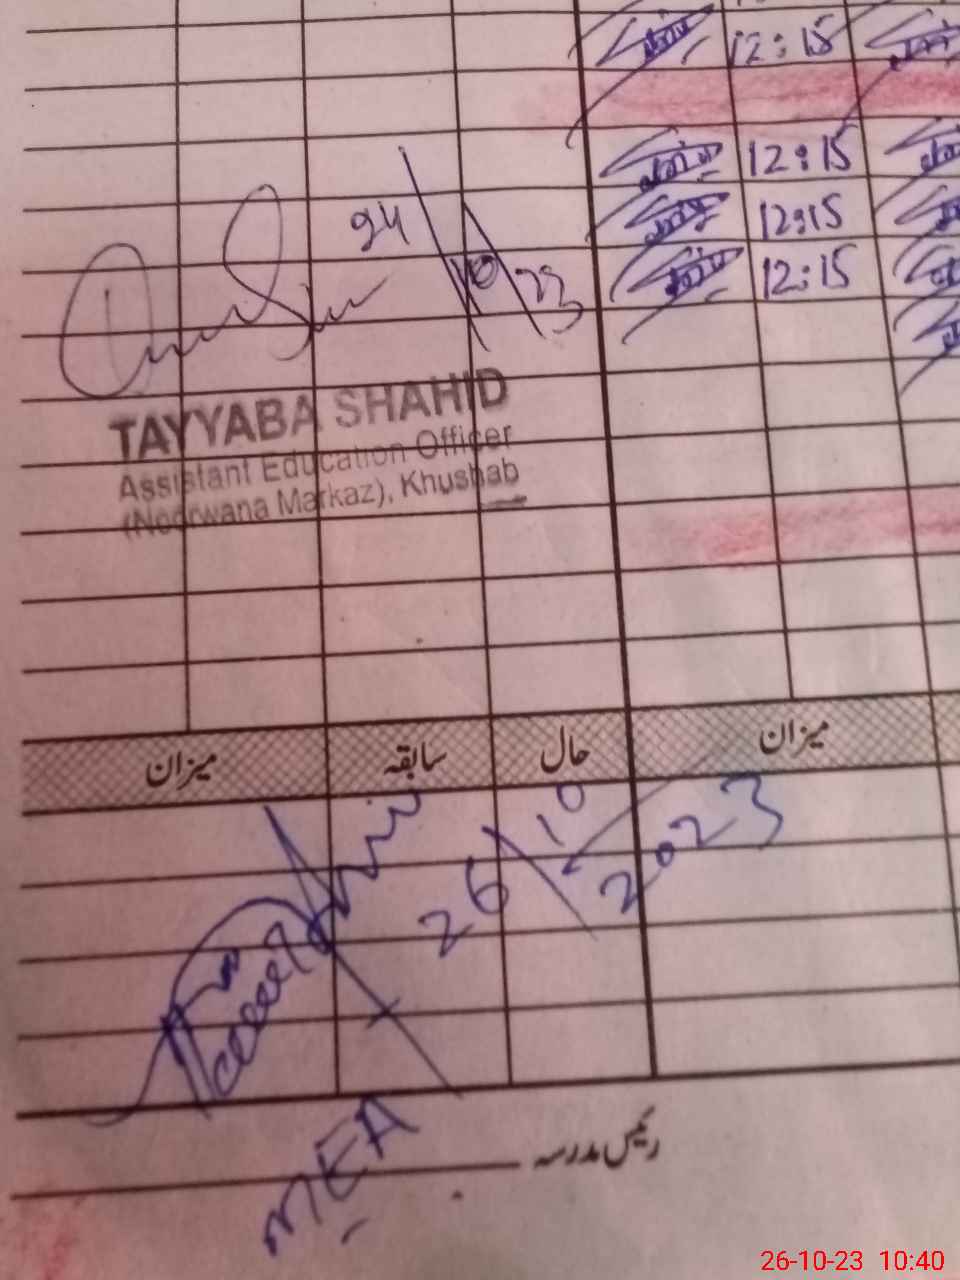 12:15
12:15
12:15
12:15
24/10/23
TAYYABA SHAHID
Assistant Education Officer
(Noorwana Markaz), Khushab
میزان حال سابقہ میزان
26/10/2023
رئیس مدرسہ
MEA
26-10-23 10:40